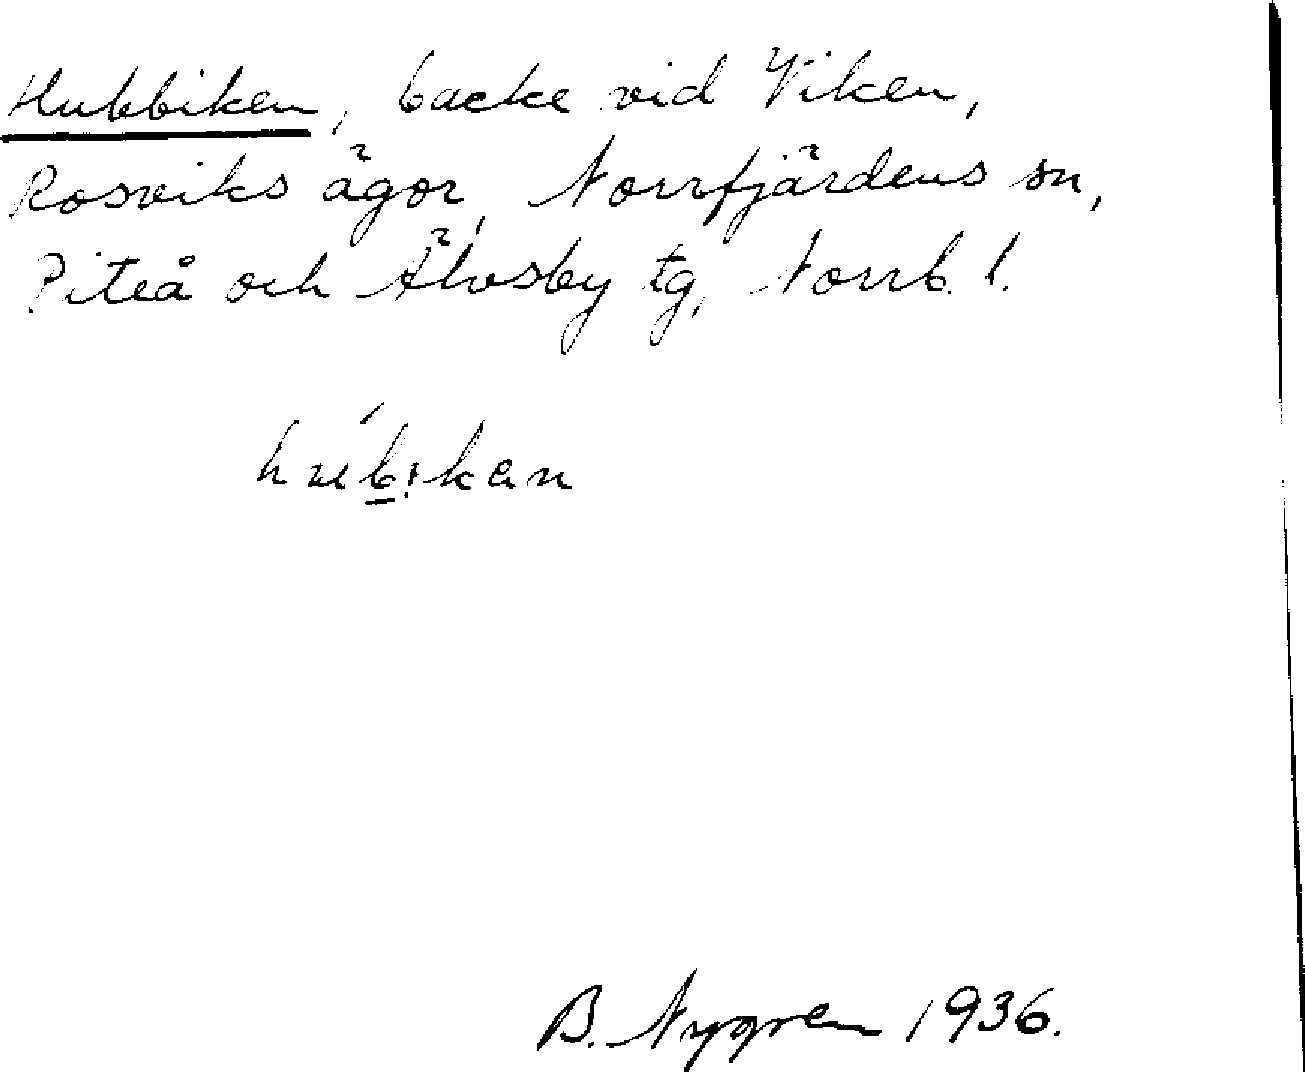 Hubbiken, backe vid Viken,
Rosviks ägor, Norrfjärdens sn,
Piteå och Älvsby tg, Norrb. l.
hu̍b̲ikən
B. Nygren 1936.